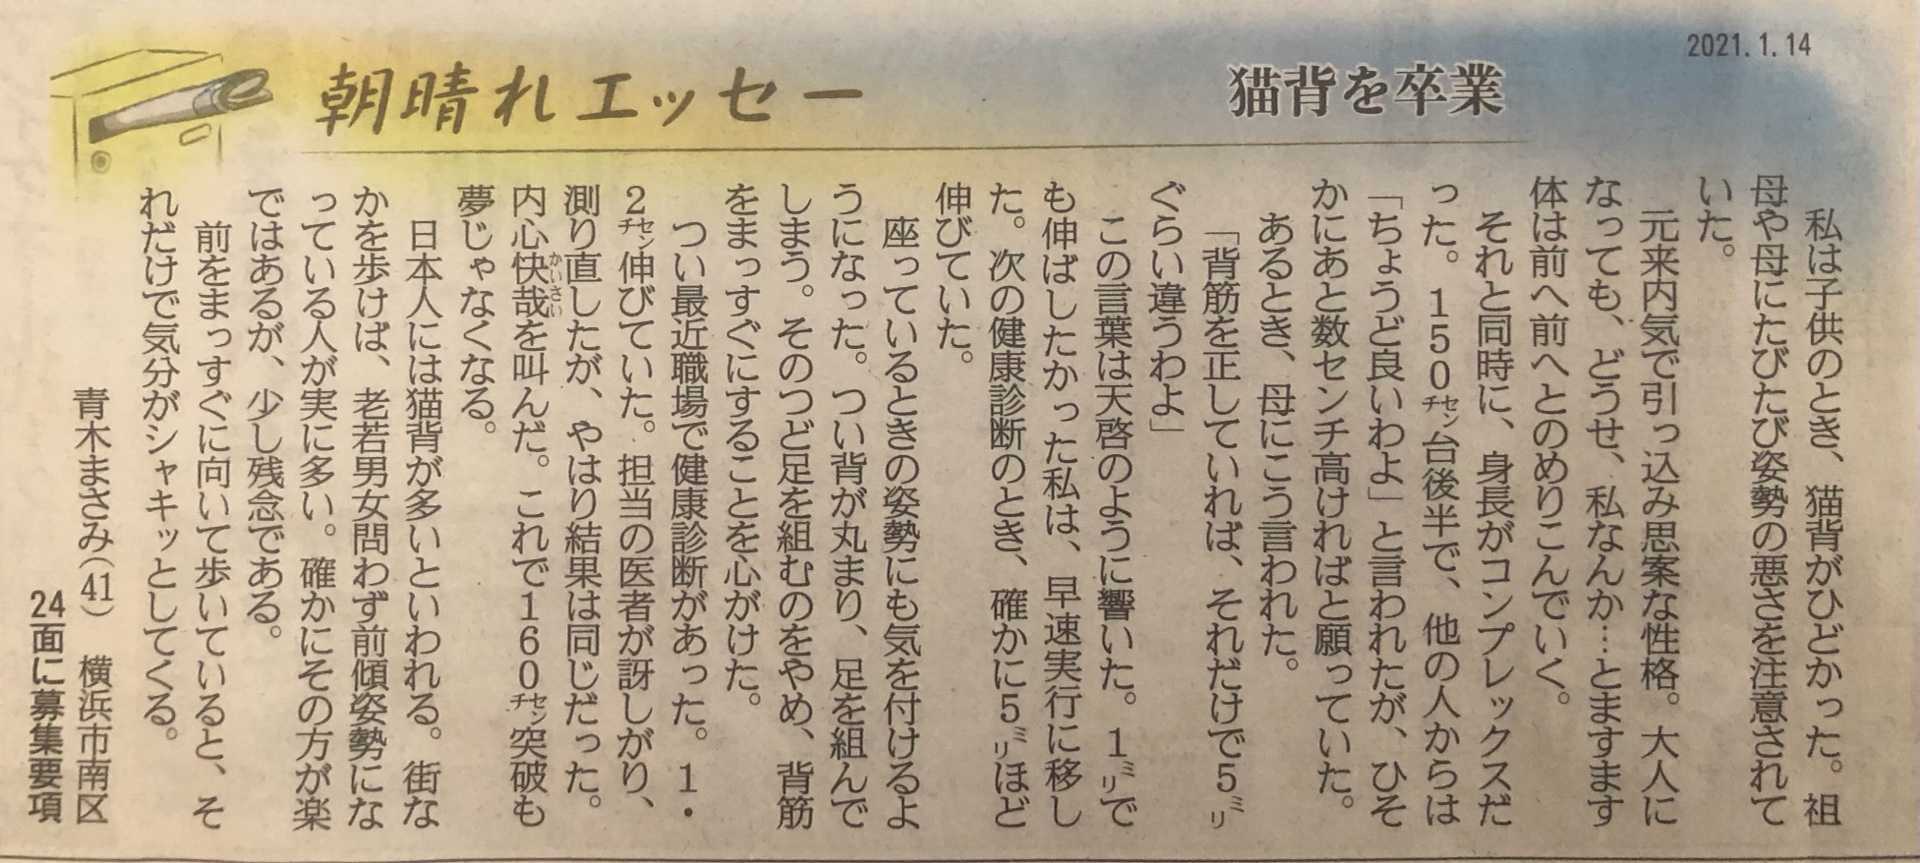 2021.1.14
朝晴れエッセー
猫背を卒業
私は子供のとき、猫背がひどかった。祖
母や母にたびたび姿勢の悪さを注意されて
いた。
元来内気で引っ込み思案な性格。大人に
なっても、どうせ、私なんか…とますます
体は前へ前へとのめりこんでいく。
それと同時に、身長がコンプレックスだ
った。150㌢台後半で、他の人からは
「ちょうど良いわよ」と言われたが、ひそ
かにあと数センチ高ければと願っていた。
あるとき、母にこう言われた。
「背筋を正していれば、それだけで5㍉
ぐらい違うわよ」
この言葉は天啓のように響いた。1㍉で
も伸ばしたかった私は、早速実行に移し
た。次の健康診断のとき、確かに5㍉ほど
伸びていた。
座っているときの姿勢にも気を付けるよ
うになった。つい背が丸まり、足を組んで
しまう。そのつど足を組むのをやめ、背筋
をまっすぐにすることを心がけた。
つい最近職場で健康診断があった。1・
2㌢伸びていた。担当の医者が訝しがり、
測り直したが、やはり結果は同じだった。
内心快哉かいさいを叫んだ。これで160㌢突破も
夢じゃなくなる。
日本人には猫背が多いといわれる。街な
かを歩けば、老若男女問わず前傾姿勢にな
っている人が実に多い。確かにその方が楽
ではあるが、少し残念である。
前をまっすぐに向いて歩いていると、そ
れだけで気分がシャキッとしてくる。
青木まさみ(41) 横浜市南区
24面に募集要項